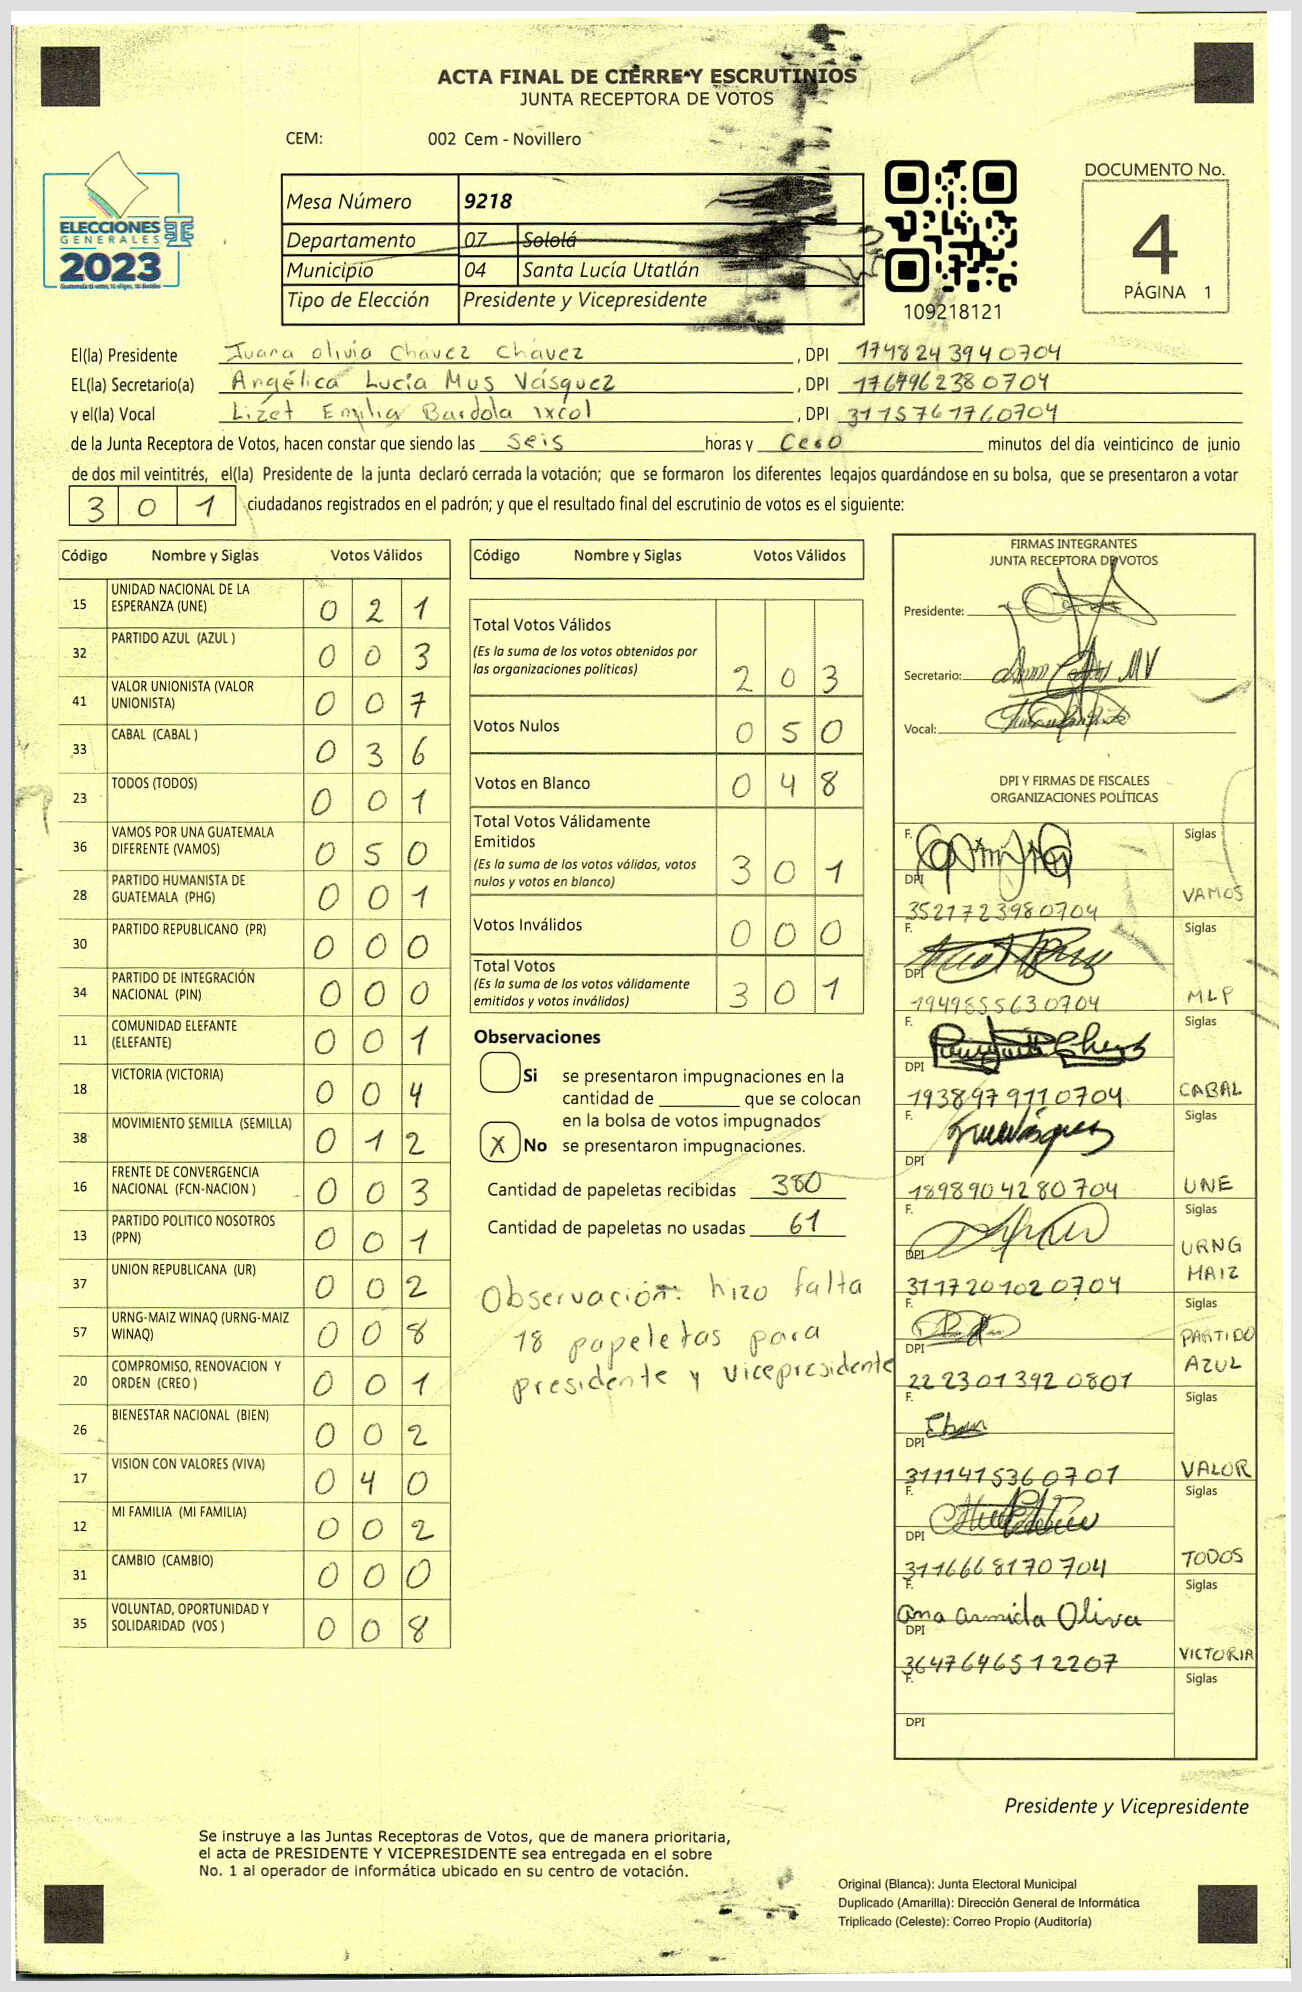 ACTA FINAL DE CIERRE Y ESCRUTINIOS
JUNTA RECEPTORA DE VOTOS
CEM: 002 Cem - Novillero
DOCUMENTO No.
4
PÁGINA 1
ELECCIONES
GENERALES
2023
Mesa Número 9218
Departamento 07 Sololá
Municipio 04 Santa Lucía Utatlán
Tipo de Elección Presidente y Vicepresidente
109218121
El(la) Presidente Juana Olivia Chavez Chávez , DPI 1748243940704
EL(la) Secretario(a) Angélica Lucía Mus Vásquez , DPI 1767962380704
y el(la) Vocal Lizet Emilia Bardola Ixcol , DPI 3115761760704
de la Junta Receptora de Votos, hacen constar que siendo las seis horas y cero minutos del día veinticinco de junio
de dos mil veintitrés, el(la) Presidente de la junta declaró cerrada la votación; que se formaron los diferentes legajos guardándose en su bolsa, que se presentaron a votar
301 ciudadanos registrados en el padrón; y que el resultado final del escrutinio de votos es el siguiente:
Código Nombre y Siglas Votos Válidos
15 UNIDAD NACIONAL DE LA ESPERANZA (UNE) 0 2 1
32 PARTIDO AZUL (AZUL ) 0 0 3
41 VALOR UNIONISTA (VALOR UNIONISTA) 0 0 7
33 CABAL (CABAL ) 0 3 6
23 TODOS (TODOS) 0 0 1
36 VAMOS POR UNA GUATEMALA DIFERENTE (VAMOS) 0 5 0
28 PARTIDO HUMANISTA DE GUATEMALA (PHG) 0 0 1
30 PARTIDO REPUBLICANO (PR) 0 0 0
34 PARTIDO DE INTEGRACIÓN NACIONAL (PIN) 0 0 0
11 COMUNIDAD ELEFANTE (ELEFANTE) 0 0 1
18 VICTORIA (VICTORIA) 0 0 4
38 MOVIMIENTO SEMILLA (SEMILLA) 0 1 2
16 FRENTE DE CONVERGENCIA NACIONAL (FCN-NACION ) 0 0 3
13 PARTIDO POLITICO NOSOTROS (PPN) 0 0 1
37 UNION REPUBLICANA (UR) 0 0 2
57 URNG-MAIZ WINAQ (URNG-MAIZ WINAQ) 0 0 8
20 COMPROMISO, RENOVACION Y ORDEN (CREO ) 0 0 1
26 BIENESTAR NACIONAL (BIEN) 0 0 2
17 VISION CON VALORES (VIVA) 0 4 0
12 MI FAMILIA (MI FAMILIA) 0 0 2
31 CAMBIO (CAMBIO) 0 0 0
35 VOLUNTAD, OPORTUNIDAD Y SOLIDARIDAD (VOS ) 0 0 8
Código Nombre y Siglas Votos Válidos
Total Votos Válidos
(Es la suma de los votos obtenidos por
las organizaciones politicas) 2 0 3
Votos Nulos 0 5 0
Votos en Blanco 0 4 8
Total Votos Válidamente
Emitidos
(Es la suma de los votos válidos, votos
nulos y votos en blanco) 3 0 1
Votos Inválidos 0 0 0
Total Votos
(Es la suma de los votos válidamente
emitidos y votos inválidos) 3 0 1
Observaciones
Si se presentaron impugnaciones en la
cantidad de ________ que se colocan
en la bolsa de votos impugnados
X No se presentaron impugnaciones.
Cantidad de papeletas recibidas 380
Cantidad de papeletas no usadas 61
Observación: hizo falta
18 papeletas para
presidente y vicepresidente
FIRMAS INTEGRANTES
JUNTA RECEPTORA DE VOTOS
Presidente:
Secretario:
Vocal:
DPI Y FIRMAS DE FISCALES
ORGANIZACIONES POLÍTICAS
F. Siglas
DPI 3521723980704 VAMOS
F. Siglas
DPI 1949855630704 MLP
F. Siglas
DPI 1938979110704 CABAL
F. Siglas
DPI 1898904280704 UNE
F. Siglas
DPI 3117201020704 URNG MAIZ
F. Siglas
DPI 2223013920801 PARTIDO AZUL
F. Siglas
DPI 3111415360701 VALOR
F. Siglas
DPI 3116668170704 TODOS
F. Ana Armida Oliva Siglas
DPI 3647646512207 VICTORIA
F. Siglas
DPI
Presidente y Vicepresidente
Se instruye a las Juntas Receptoras de Votos, que de manera prioritaria,
el acta de PRESIDENTE Y VICEPRESIDENTE sea entregada en el sobre
No. 1 al operador de informática ubicado en su centro de votación.
Original (Blanca): Junta Electoral Municipal
Duplicado (Amarilla): Dirección General de Informática
Triplicado (Celeste): Correo Propio (Auditoría)